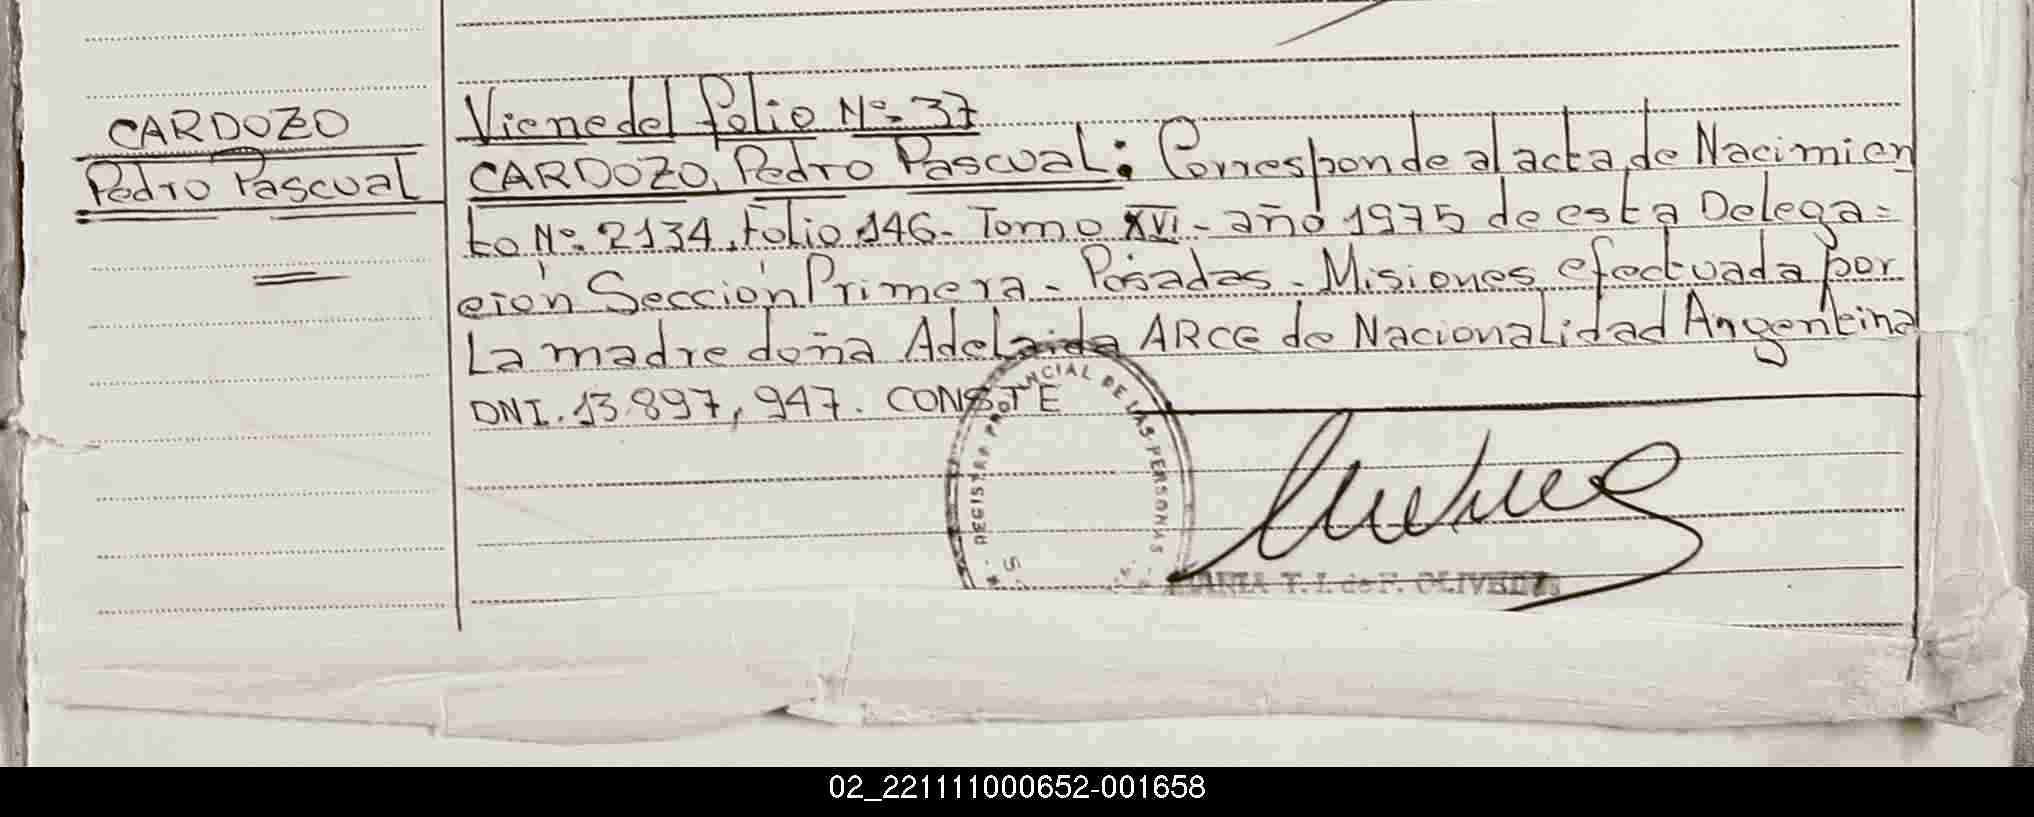 CARDOZO
Pedro Pascual
Viene del folio Nº 37
CARDOZO, Pedro Pascual: Corresponde al acta de Nacimien
to Nº 2134, Folio 146- Tomo XVI- año 1975 de esta Delega=
ción Sección Primera - Posadas - Misiones efectuada por
La madre doña Adelaida ARCE de Nacionalidad Argentina
DNI. 13.897,947. CONSTE
DE LAS PERSONAS
MARIA T. I. de F. OLIVERA
02_221111000652-001658